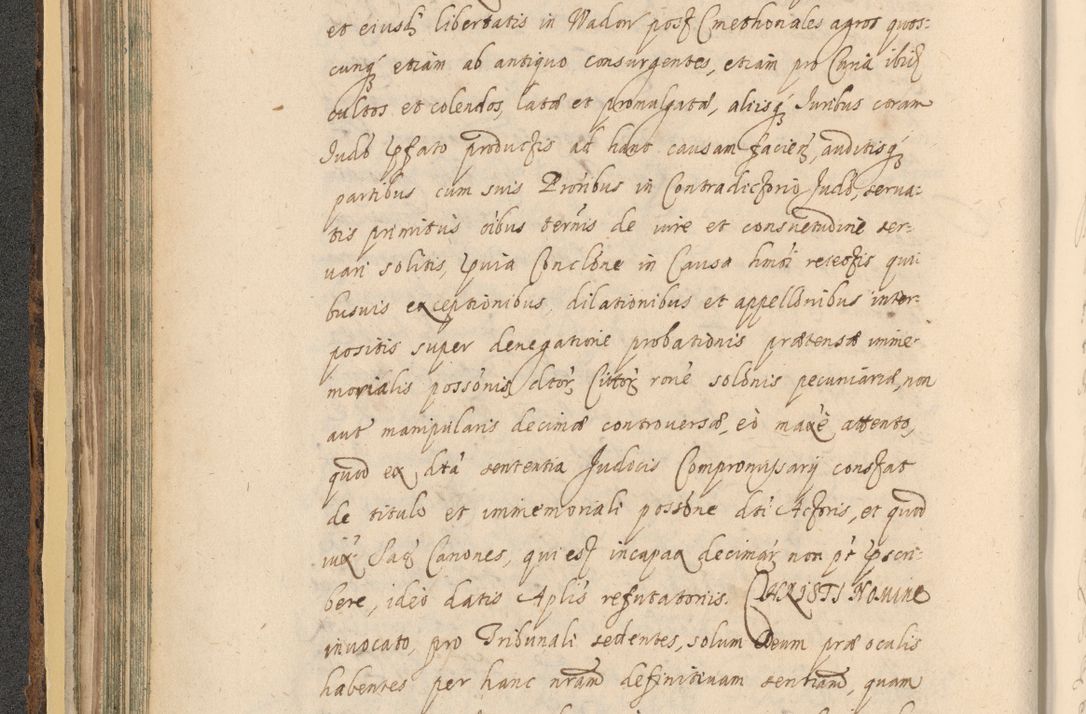 et eiusd libertatis in Wadow post Cmethonales agros quos-
cunq etiam ab antiquo consurgentes, etiam pro Curia ibid
cultos et colendos, latæ et promulgatæ, aliisq Juribus coram
Judō pfato productis ad hanc causam facien, auditisq
partibus cum suis Prōribus in Contradictorio Judō, serva-
tis primitùs oībus term̄is de iure et consuetudine ser-
vari solitis, quia Conclōne in Causa hmōi reiectis qui-
busuis exceptionibus, dilationibus et appellōnibus inter-
positis super denegatione probationis prætensæ imme-
morialis possōnis, dtor Cittor rōne solōnis pecuniariæ, non
aut manipularis decimæ controversæ, eò maxè attento,
quod ex dtā sententia Judicis Compromissarij constat
de titulo et immemoriali possōne dti Actoris, et quod
iux Sac Canones, qui est incapax decimar non pt pscri-
bere, ideò datis Aplis refutatoriis. CHRISTI NOMINE
invocato, pro Tribunali sedentes, solum Deum præ oculis
habentes per hanc nram definitivam sentiam, quam